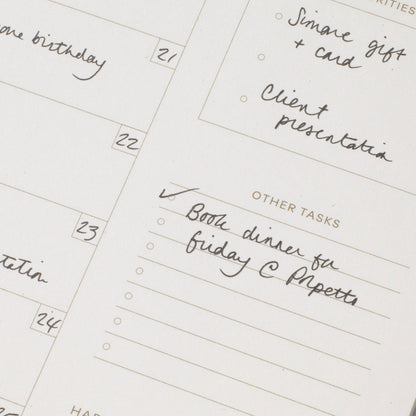 one birthday
21
22
23
tation
24
25
RITIES
Simone gift
+ card
Client
presentation
OTHER TASKS
Book dinner for
friday @
HA